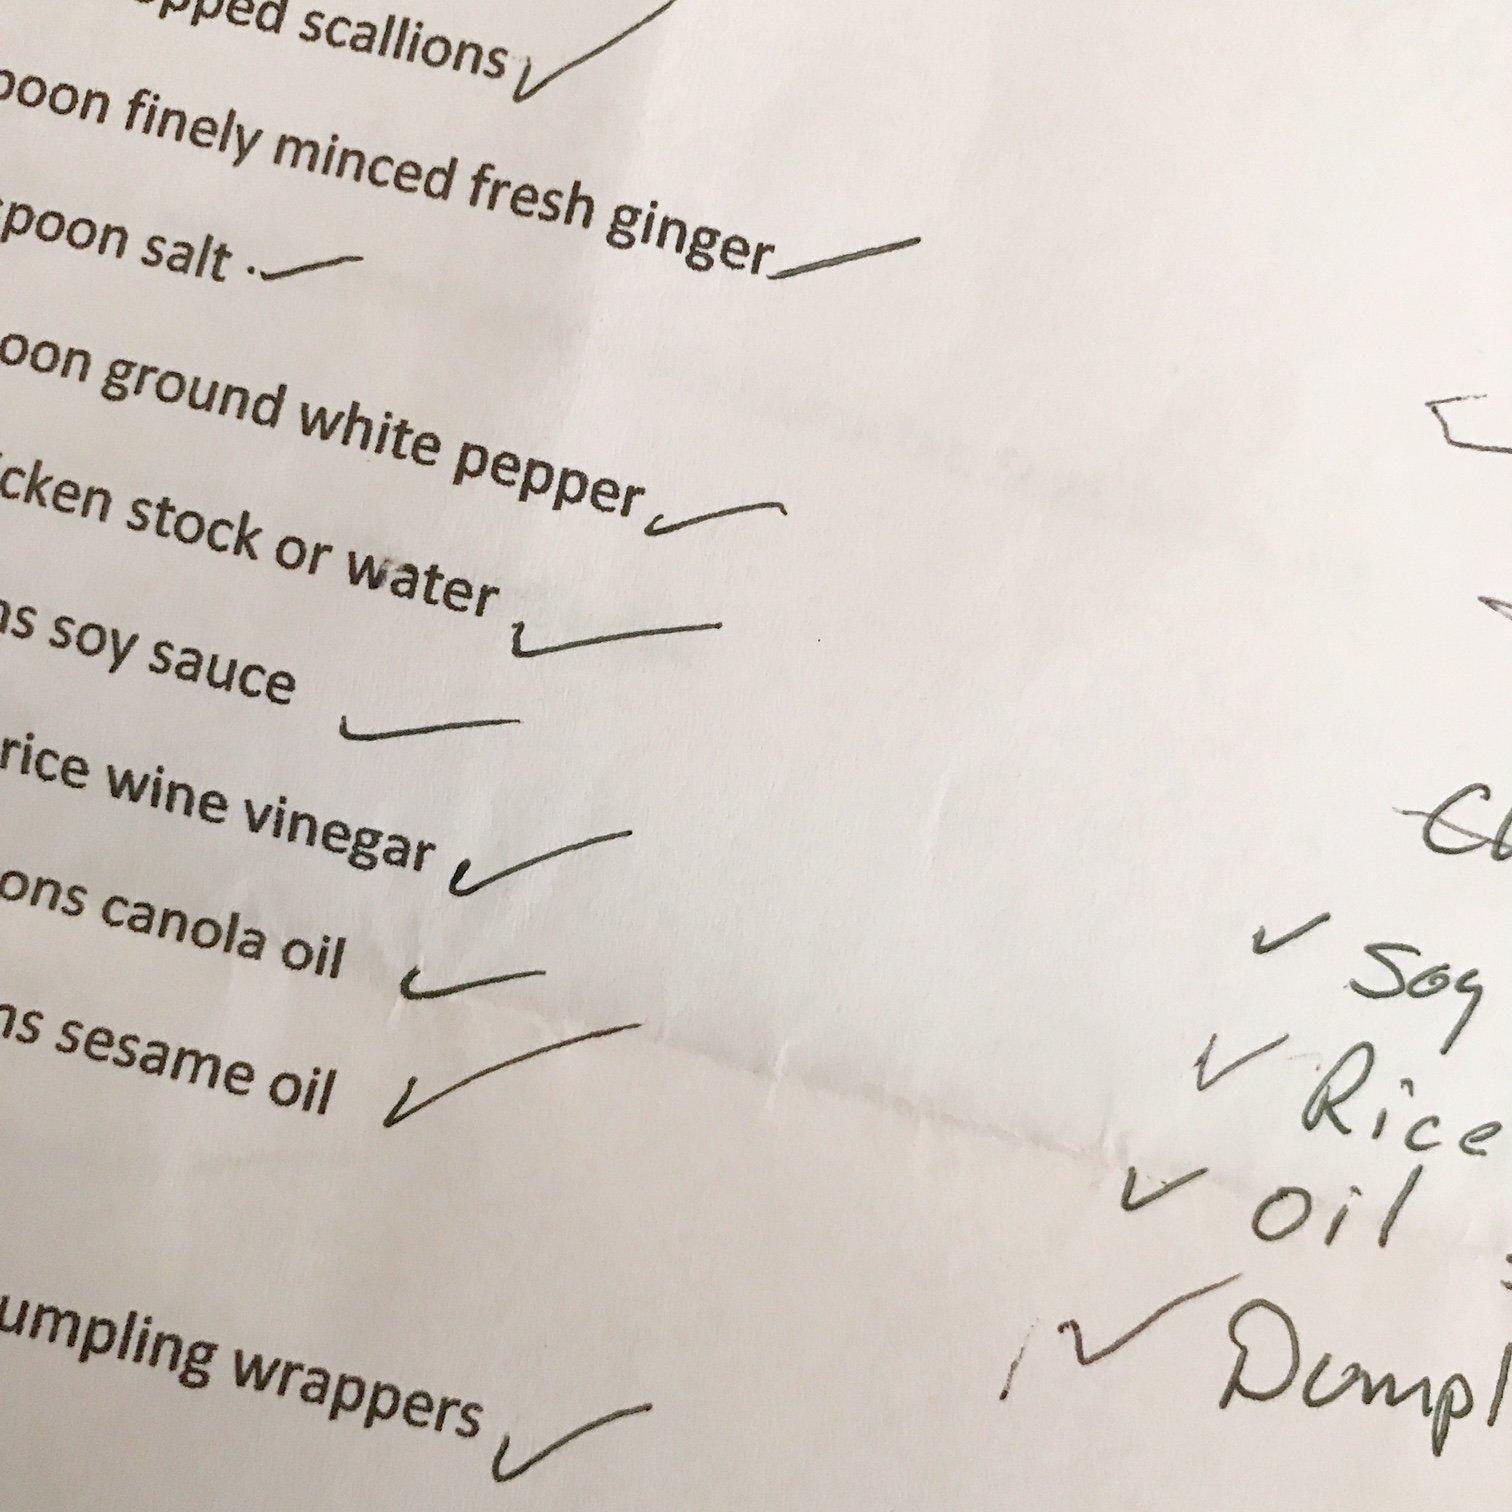 pped scallions
poon finely minced fresh ginger
spoon salt .
oon ground white pepper
icken stock or water
ns soy sauce
rice wine vinegar
ons canola oil
ns sesame oil
umpling wrappers
Soy
Rice
oil
Dumpl